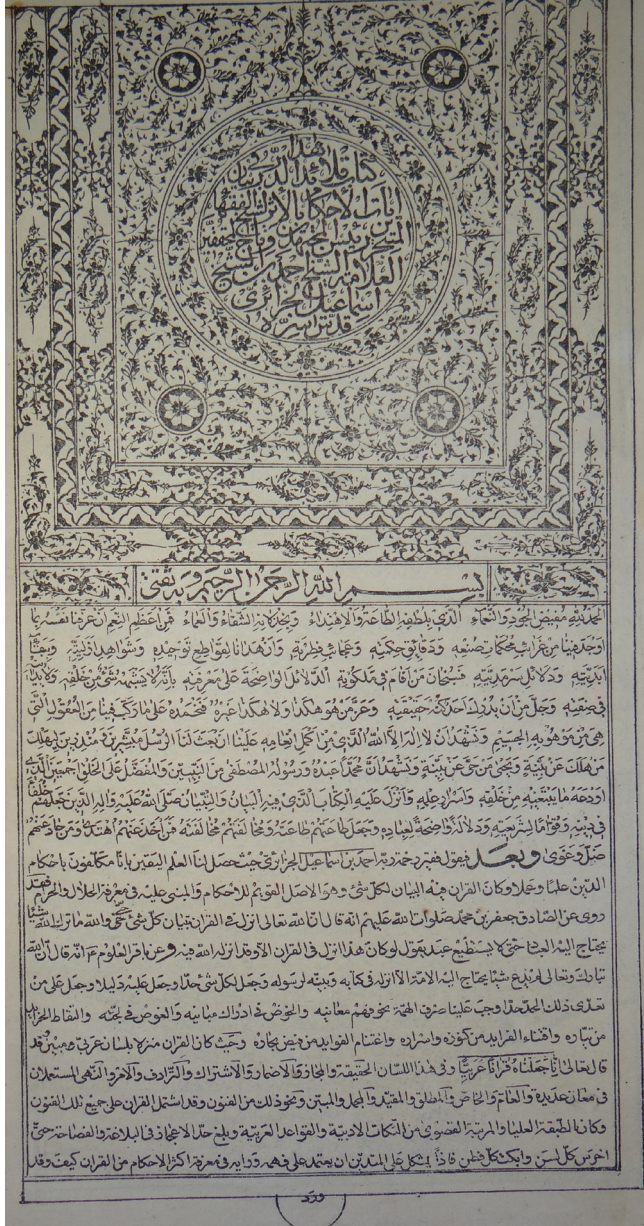 هذا
كتاب قلائد الدرر في بيان
ايات الاحكام بالاثر لشيخ الفقهاء
العلامة الشيخ احمد بن الشيخ
اسماعيل الجزائري
قدس سره
بسم الله الرحمن الرحيم وبه ثقتي
الحمد لله مفيض الجود والنعماء الذي بلطفه الطاعة والاهتداء وبخذلانه الشقاء والعماء فمن اعظم النعم ان عرفنا نفسه بما
اوجد فينا من غرائب محكمات صنعه ودقائق حكمته وعجائب فطرته وان هدانا لقواطع توحيده وشواهد
ابديته ودلائل سرمديته فسبحان من اقام في ملكوته الدلائل الواضحة على معرفته بانه لا يشبهه شيء من خلقه
في صفته وجل من ان يدرك احد كنه حقيقته وعز من هو هكذا ولا هكذا غيره فنحمده على ما ركب فينا من العقول التي
هي من موهوبه الجسيم ونشهد ان لا اله الا الله الذي من اكمل انعامه علينا ان بعث لنا الرسل مبشرين ومنذرين ليهلك
من هلك عن بينة ويحيى من حي عن بينة ونشهد ان محمدا عبده ورسوله المصطفى من النبيين والمفضل على الخلق اجمعين الذي
اودعه ما يبتغيه من خلقه واسراره وانزل عليه الكتاب الذي فيه البيان والتبيان صلى الله عليه واله الذين جعلهم خلفا
في دينه وقواما لشريعته ودلالة واضحة لعباده وجعل طاعتهم طاعته ومخالفتهم مخالفته فمن اخذ عنهم اهتدى ومن حاد عنهم
ضل وغوى وبعد فيقول فقير رحمة ربه احمد بن اسماعيل الجزائري حيث حصل لنا العلم اليقين باننا مكلفون باحكام
الدين علما وعملا وكان القران فيه البيان لكل شيء وهو الاصل القويم للاحكام والمبني عليه في معرفة الحلال والحرام فقد
روى عن الصادق جعفر بن محمد صلوات الله عليهم انه قال ان الله تعالى انزل في القران تبيان كل شيء حتى والله ما ترك الله شيئا
يحتاج اليه العباد حتى لا يستطيع عبد يقول لو كان هذا انزل في القران الا وقد انزله الله فيه وعن باقر العلوم ع انه قال ان الله
تبارك وتعالى لم يدع شيئا يحتاج اليه الامة الا انزله في كتابه وبينه لرسوله وجعل لكل شيء حدا وجعل عليه دليلا وجعل على من
تعدى ذلك الحد حدا وجب علينا صرف الهمة نحو فهم معانيه والخوض في ادراك مبانيه والغوص في لجته والتقاط
من تياره واقتناء الفرايد من كنوزه واسراره واغتنام الفوايد من فيض بحاره وحيث كان القران منزلا بلسان عربي ومبين وقد
قال تعالى انا جعلناه قرانا عربيا وفي هذا اللسان الحقيقة والمجاز والاضمار والاشتراك والترادف والامر والنهي المستعملان
في معان عديدة والعام والخاص والمطلق والمقيد والمجمل والمبين ونحو ذلك من الفنون وقد اشتمل القران على جميع تلك الفنون
وكان بالطبقة العليا والمرتبة القصوى من النكات الادبية والقواعد العربية وبلغ حد الاعجاز في البلاغة والفصاحة حتى
اخرس كل لسن وابكت كل فطن فاذا يشكل على المتدين ان يعتمد على فهمه ورايه في معرفة اكثر الاحكام من القران كيف وقد
ورد